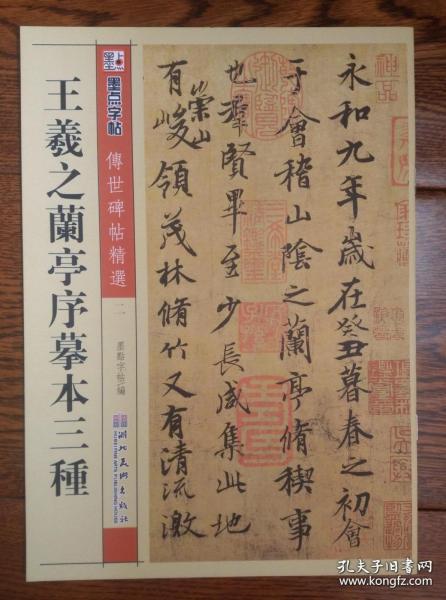 王羲之蘭亭序摹本三種
墨点
墨点字帖
傳世碑帖精選
二
墨點字帖 編
湖北美術出版社
HUBEI FINE ARTS PUBLISHING HOUSE
永和九年歲在癸丑暮春之初會
于會稽山陰之蘭亭脩稧事
也羣賢畢至少長咸集此地
有崇山峻領茂林脩竹又有清流激
神品
孔夫子旧书网
www.kongfz.com